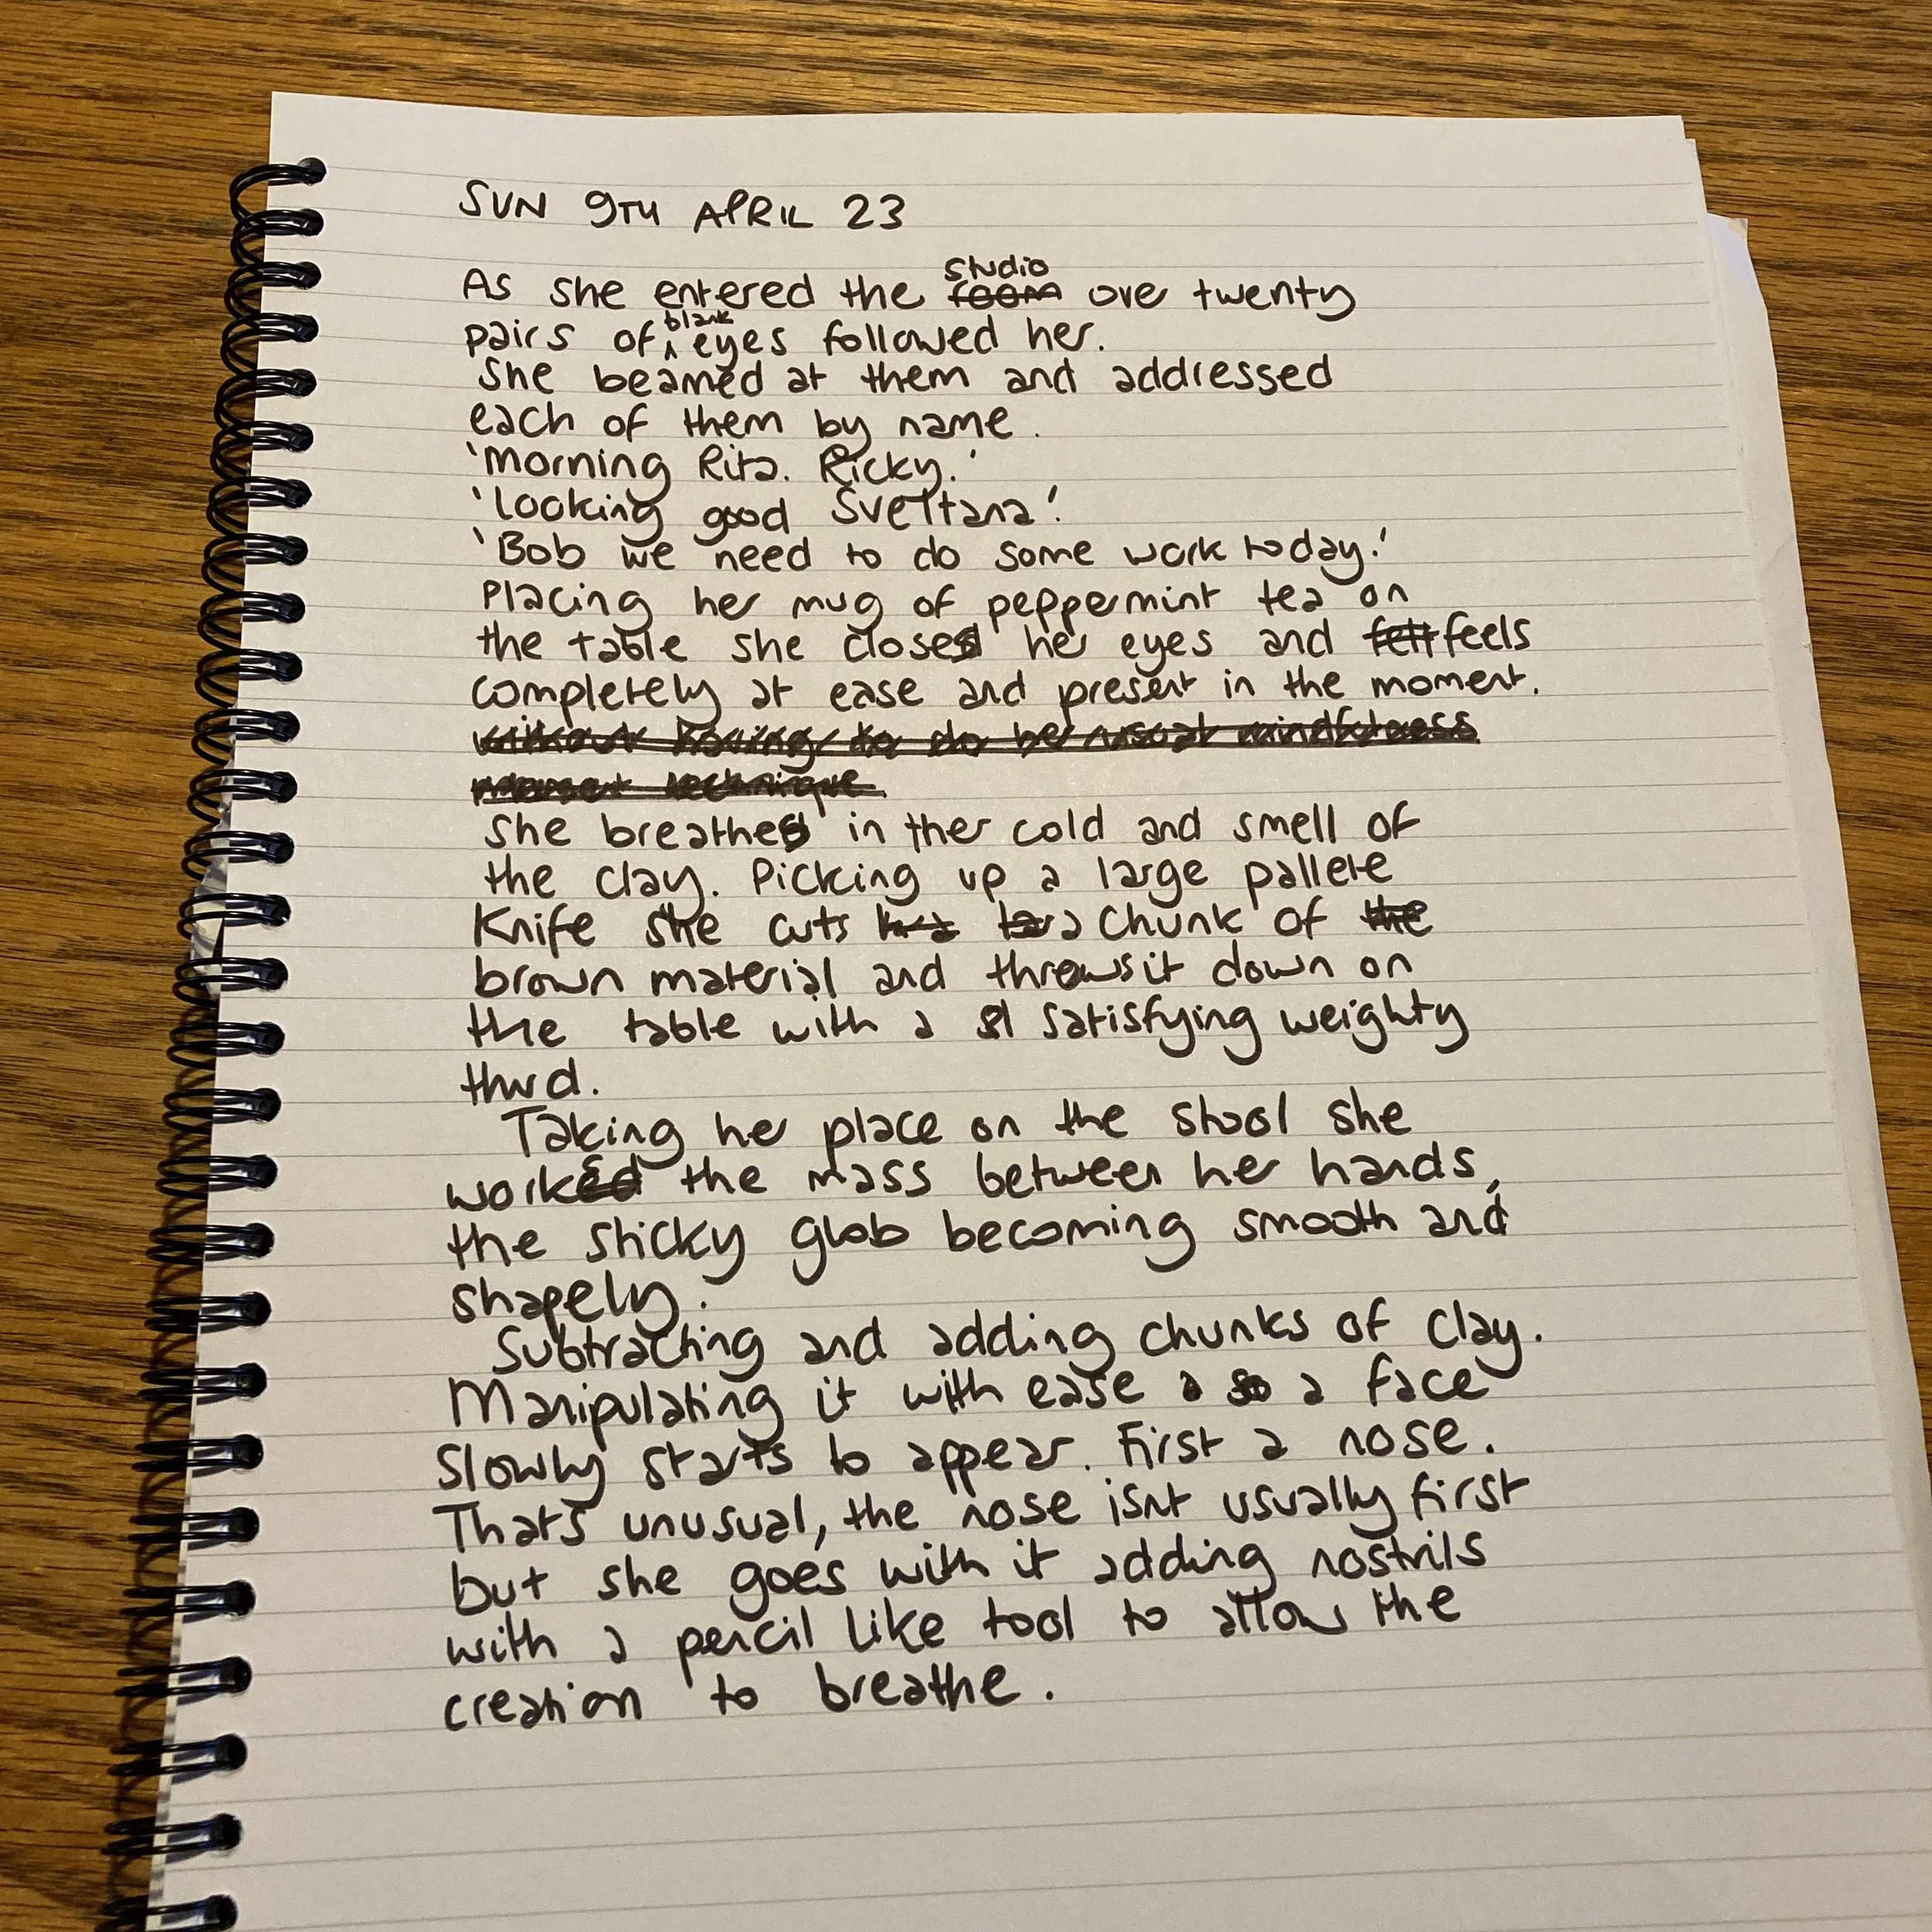 SUN 9TH APRIL 23
As she entered the studio room over twenty
pairs of blank eyes followed her.
She beamed at them and addressed
each of them by name.
'Morning Rita. Ricky.'
'Looking good Sveltana.'
'Bob we need to do some work today.'
Placing her mug of peppermint tea on
the table she closes her eyes and felt feels
completely at ease and present in the moment.
without having to do her usual mindfulness
technique.
She breathes in ther cold and smell of
the clay. Picking up a large pallete
Knife she cuts a chunk of the
brown material and throws it down on
the table with a satisfying weighty
thud.
Taking her place on the stool she
works the mass between her hands,
the sticky glob becoming smooth and
shapely.
Subtracting and adding chunks of clay.
Manipulating it with ease so a face
slowly starts to appear. First a nose.
That's unusual, the nose isnt usually first
but she goes with it adding nostrils
with a pencil like tool to allow the
creation to breathe.